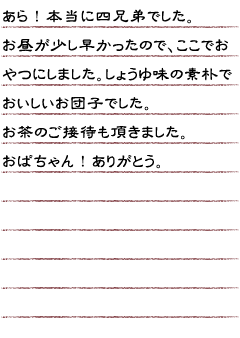 あら！本当に四兄弟でした。
お昼が少し早かったので、ここでお
やつにしました。しょうゆ味の素朴で
おいしいお団子でした。
お茶のご接待も頂きました。
おばちゃん！ありがとう。